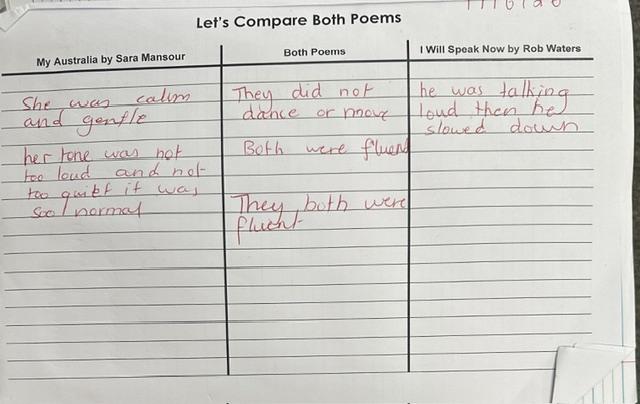 Let's Compare Both Poems
My Australia by Sara Mansour
Both Poems
I Will Speak Now by Rob Waters
She was calim
and gentle
her tone was not
too loud and not
too quibt it was
soo normal
They did not
dance or move
Both were fluent
They both were
fluent
he was talking
loud then he
slowed down